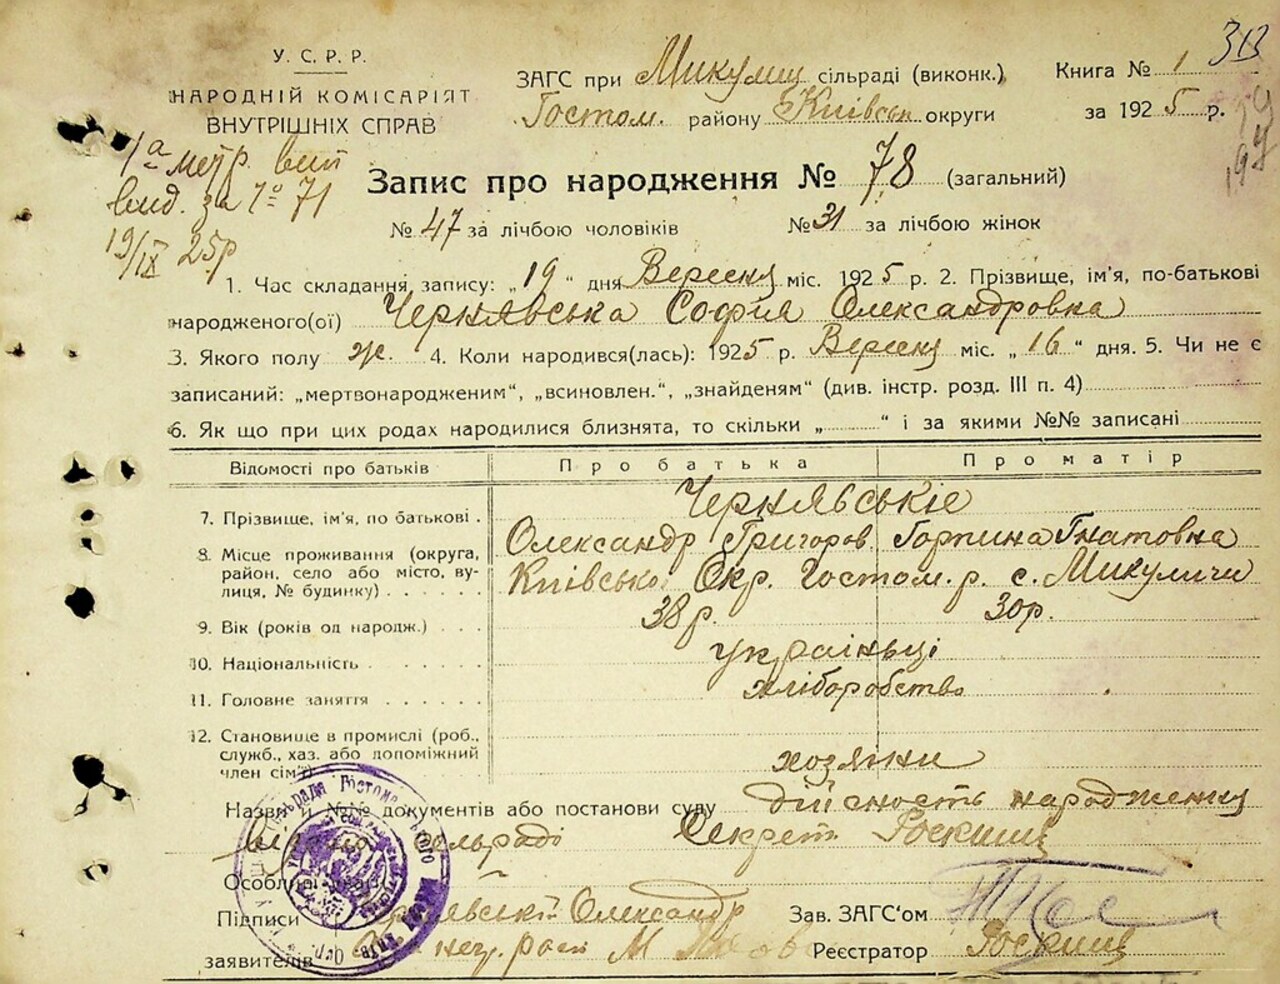 313
У. С. Р. Р.
НАРОДНІЙ КОМІСАРІЯТ
ВНУТРІШНІХ СПРАВ
ЗАГС при Микулиц сільраді (виконк.) Книга № 1
Гостом. району Київськ округи за 1925 р.
1а метр. вип
вид. за № 71
19/IX 25р
Запис про народження № 78 (загальний)
№ 47 за лічбою чоловіків № 31 за лічбою жінок
1. Час складання запису: „19“ дня Вересня міс. 1925 р. 2. Прізвище, ім'я, по-батькові
народженого(ої) Чернявська София Олександровна
3. Якого полу ж. 4. Коли народився(лась): 1925 р. Вересня міс. „16“ дня. 5. Чи не є
записаний: „мертвонародженим“, „всиновлен.“, „знайденям“ (див. інстр. розд. III п. 4)
6. Як що при цих родах народилися близнята, то скільки „ “ і за якими №№ записані
Відомості про батьків Про батька Про матір
Чернявськіе
7. Прізвище, ім'я, по батькові . Олександр Григоров. Горпина Гнатовна
8. Місце проживання (округа, район, село або місто, вулиця, № будинку) Київсько. Окр. Гостом. р. с. Микуличи
9. Вік (років од народж.) 38 р. 30 р.
10. Національність україньці
11. Головне заняття хліборобство
12. Становище в промислі (роб., служб., хаз. або допоміжний член сім'ї) хозяни
Назви й №№ документів або постанови суду дійсность народження
сельраді Секрет Роскиш
Особливі
Підписи Чернявський Олександр Зав. ЗАГС'ом
заявителів М Реєстратор Роскиш